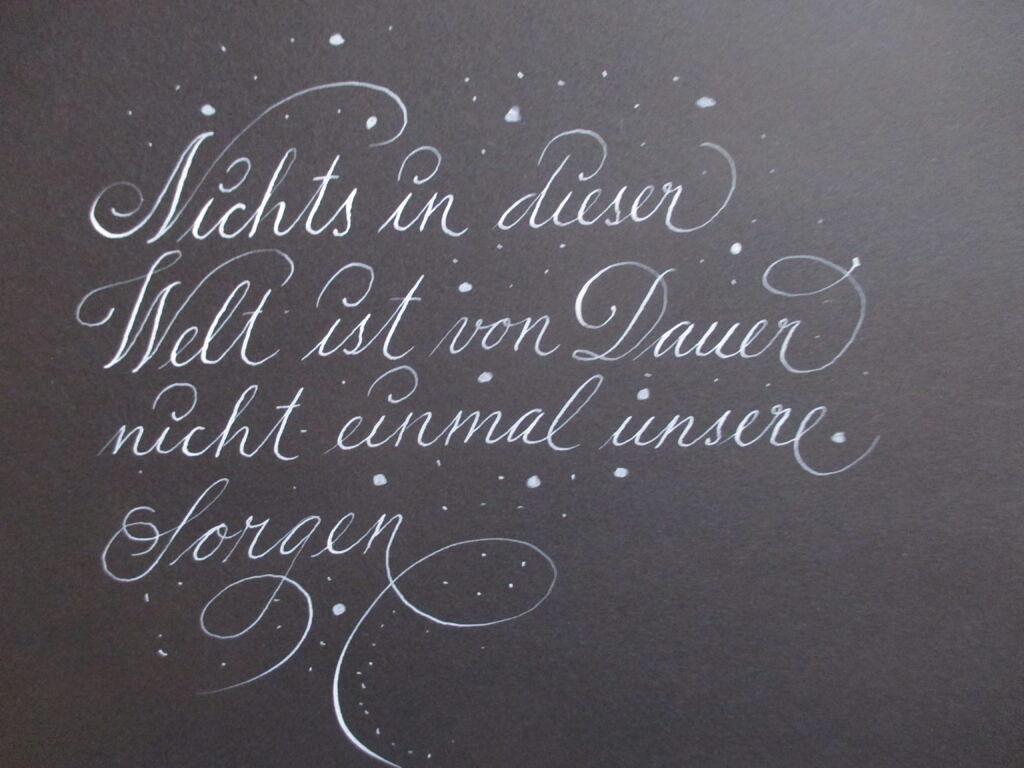 Nichts in dieser
Welt ist von Dauer
nicht einmal unsere
Sorgen